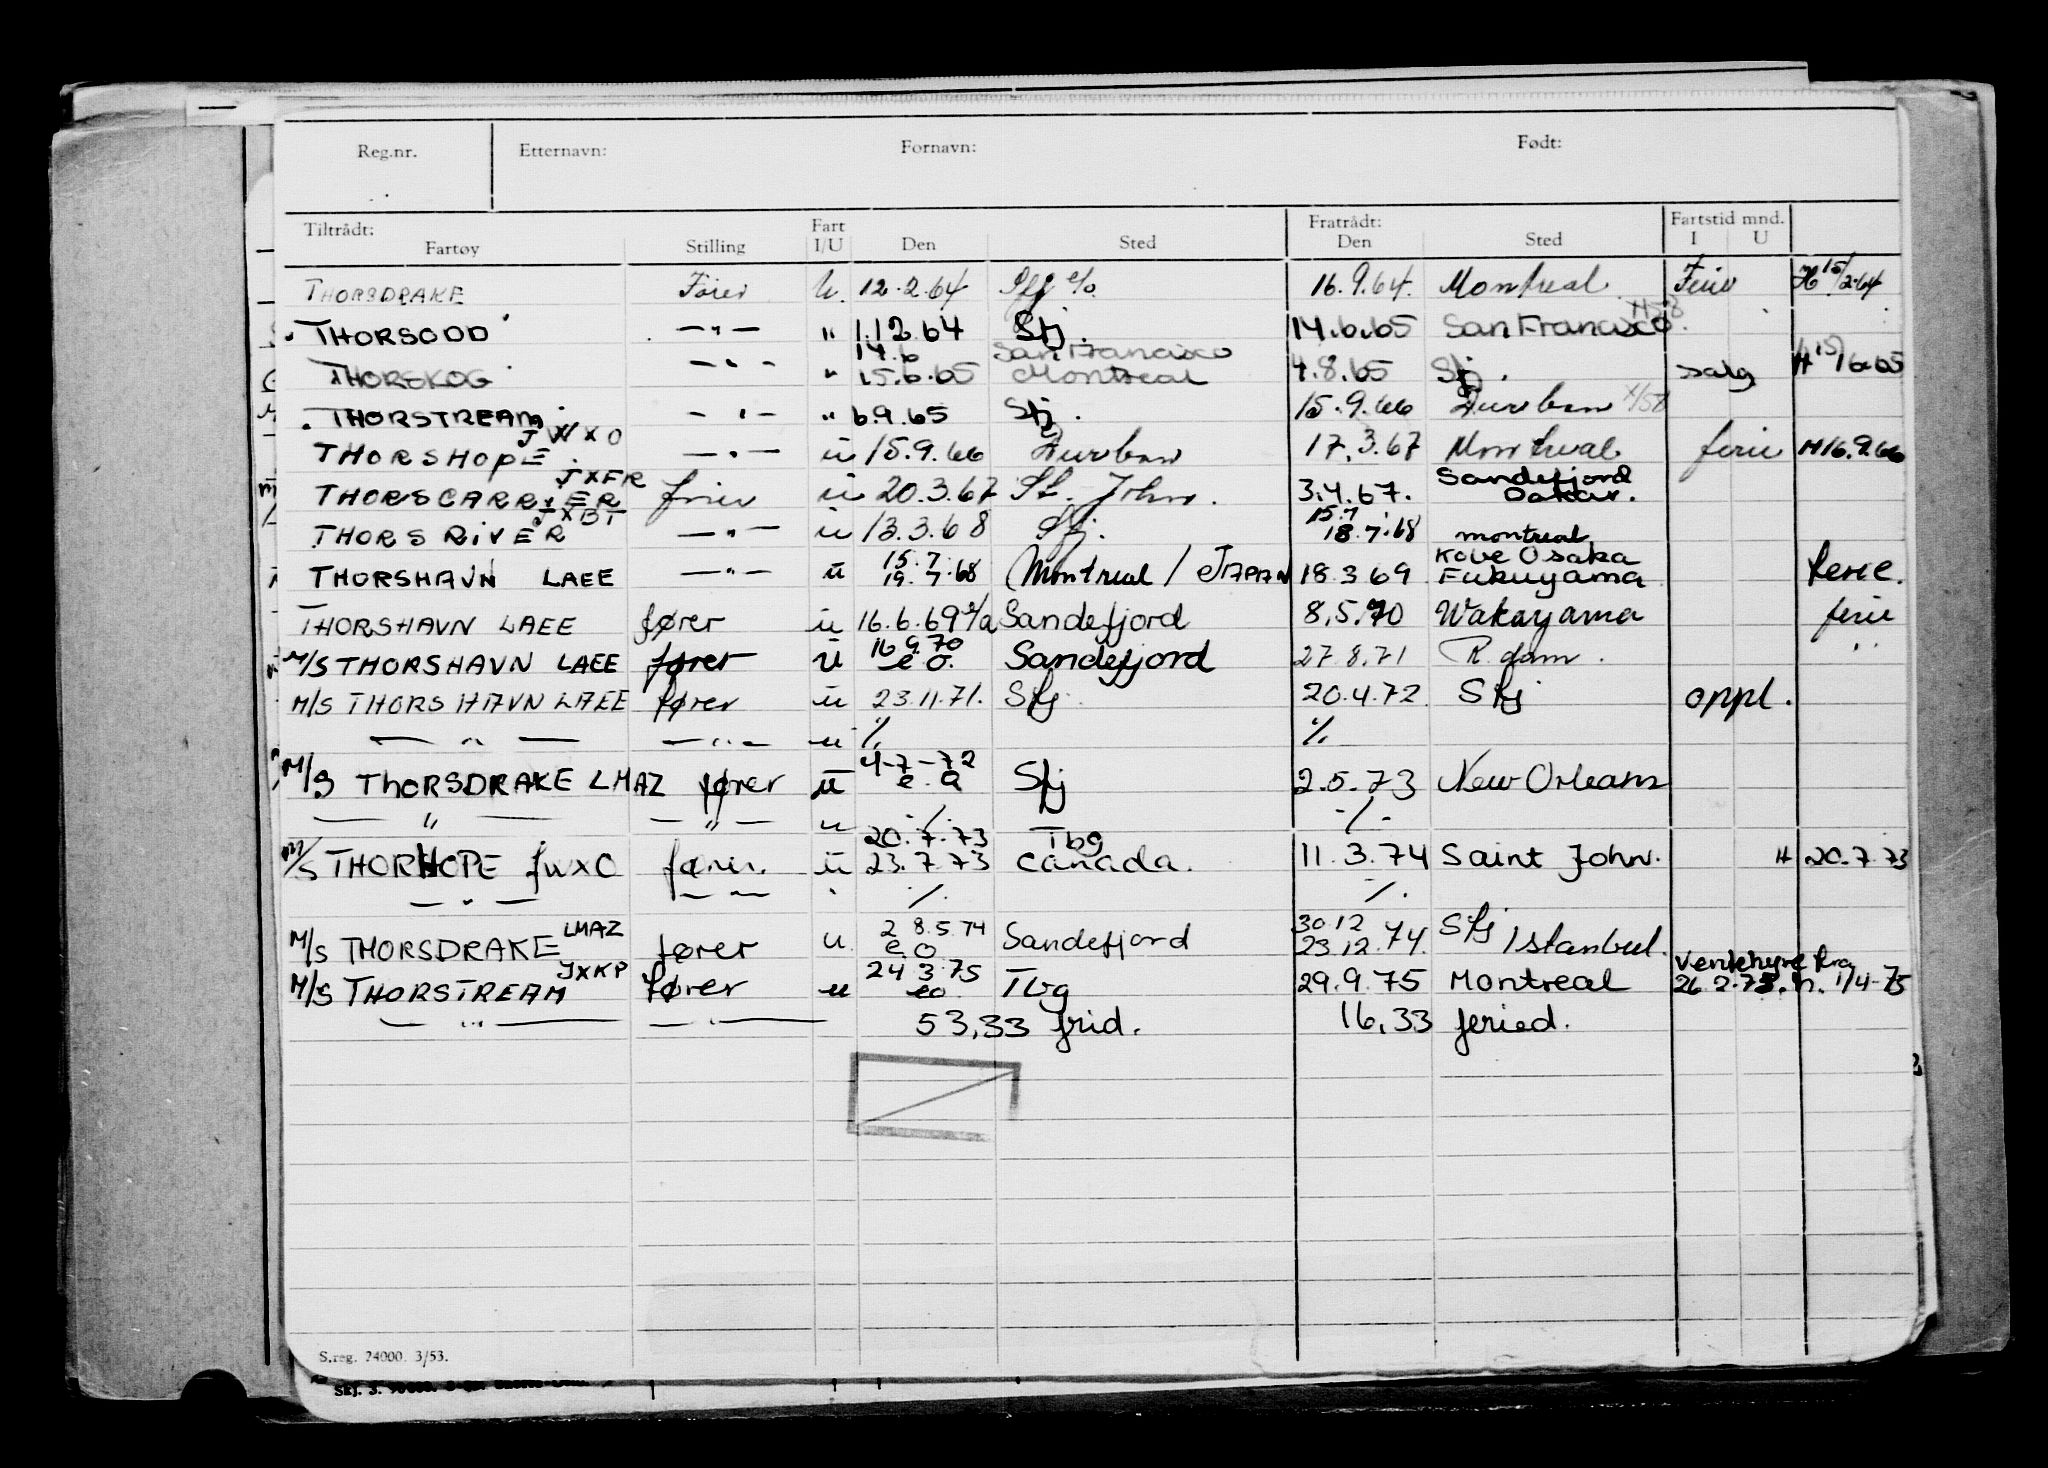 Reg.nr. Etternavn: Fornavn: Født:
Tiltrådt: Fart Fratrådt: Fartstid mnd.
Fartøy Stilling I/U Den Sted Den Sted I U
THORSDRAKE Fører U. 12.2.64 Sfj e/o 16.9.64. Montreal Ferie H 15/2.64
THORSODD — " — " 1.12 64 Sfj. 14.6.65 San Francisco
14.6 San Francisco
THORSKOG — " — " 15.6.65 Montreal 4.8.65 Sfj. salg H 15/6-65
THORSTREAM — " — " 6.9.65 Sfj. 15.9.66 Durban
JWXO
THORSHOPE — " — u 15.9.66 Durban 17.3.67 Montreal ferie H 16.9.66
JXFR Sandefjord
THORSCARRIER fører u 20.3.67 St. John. 3.4.67. Dakar.
JXBT 15.7
THORSRIVER — " — u 13.3.68 Sfj. 18.7.68 montreal
15.7. Kobe Osaka
THORSHAVN LAEE — " — u 19.7.68 Montreal / JAPAN 18.3 69 Fukuyama ferie.
THORSHAVN LAEE fører u 16.6.69 e/a Sandefjord 8.5.70 Wakayama ferie
16 9.70
M/S THORSHAVN LAEE fører u e o. Sandefjord 27 8.71 R.dam. "
M/S THORSHAVN LAEE fører u 23.11.71. Sfj. 20.4.72 Sfj oppl.
— " — — " — u ./. ./.
4-7-72
M/S THORSDRAKE LMAZ fører u e.a Sfj 2.5.73 New Orleans
— " — — " — u ./. ./.
20.7.73 Tbg
M/S THORHOPE JWXO fører. u 23.7.73 Canada. 11.3.74 Saint John. H 20.7.73
— " — — " — ./. ./.
LMAZ 2 8.5.74 30 12 Sfj
M/S THORSDRAKE fører u. e.o Sandefjord 23.12.74. Istanbul.
JXKP 24 3.75 Ventehyre fra
M/S THORSTREAM fører u eo. Tbg 29.9.75 Montreal 26.2.75. h. 1/4-75
— " — — " — 53,33 frid. 16,33 feried.
S.reg. 74000. 3/53.